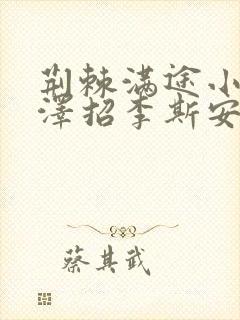 荆棘满途小
泽招李斯安
蔡其武